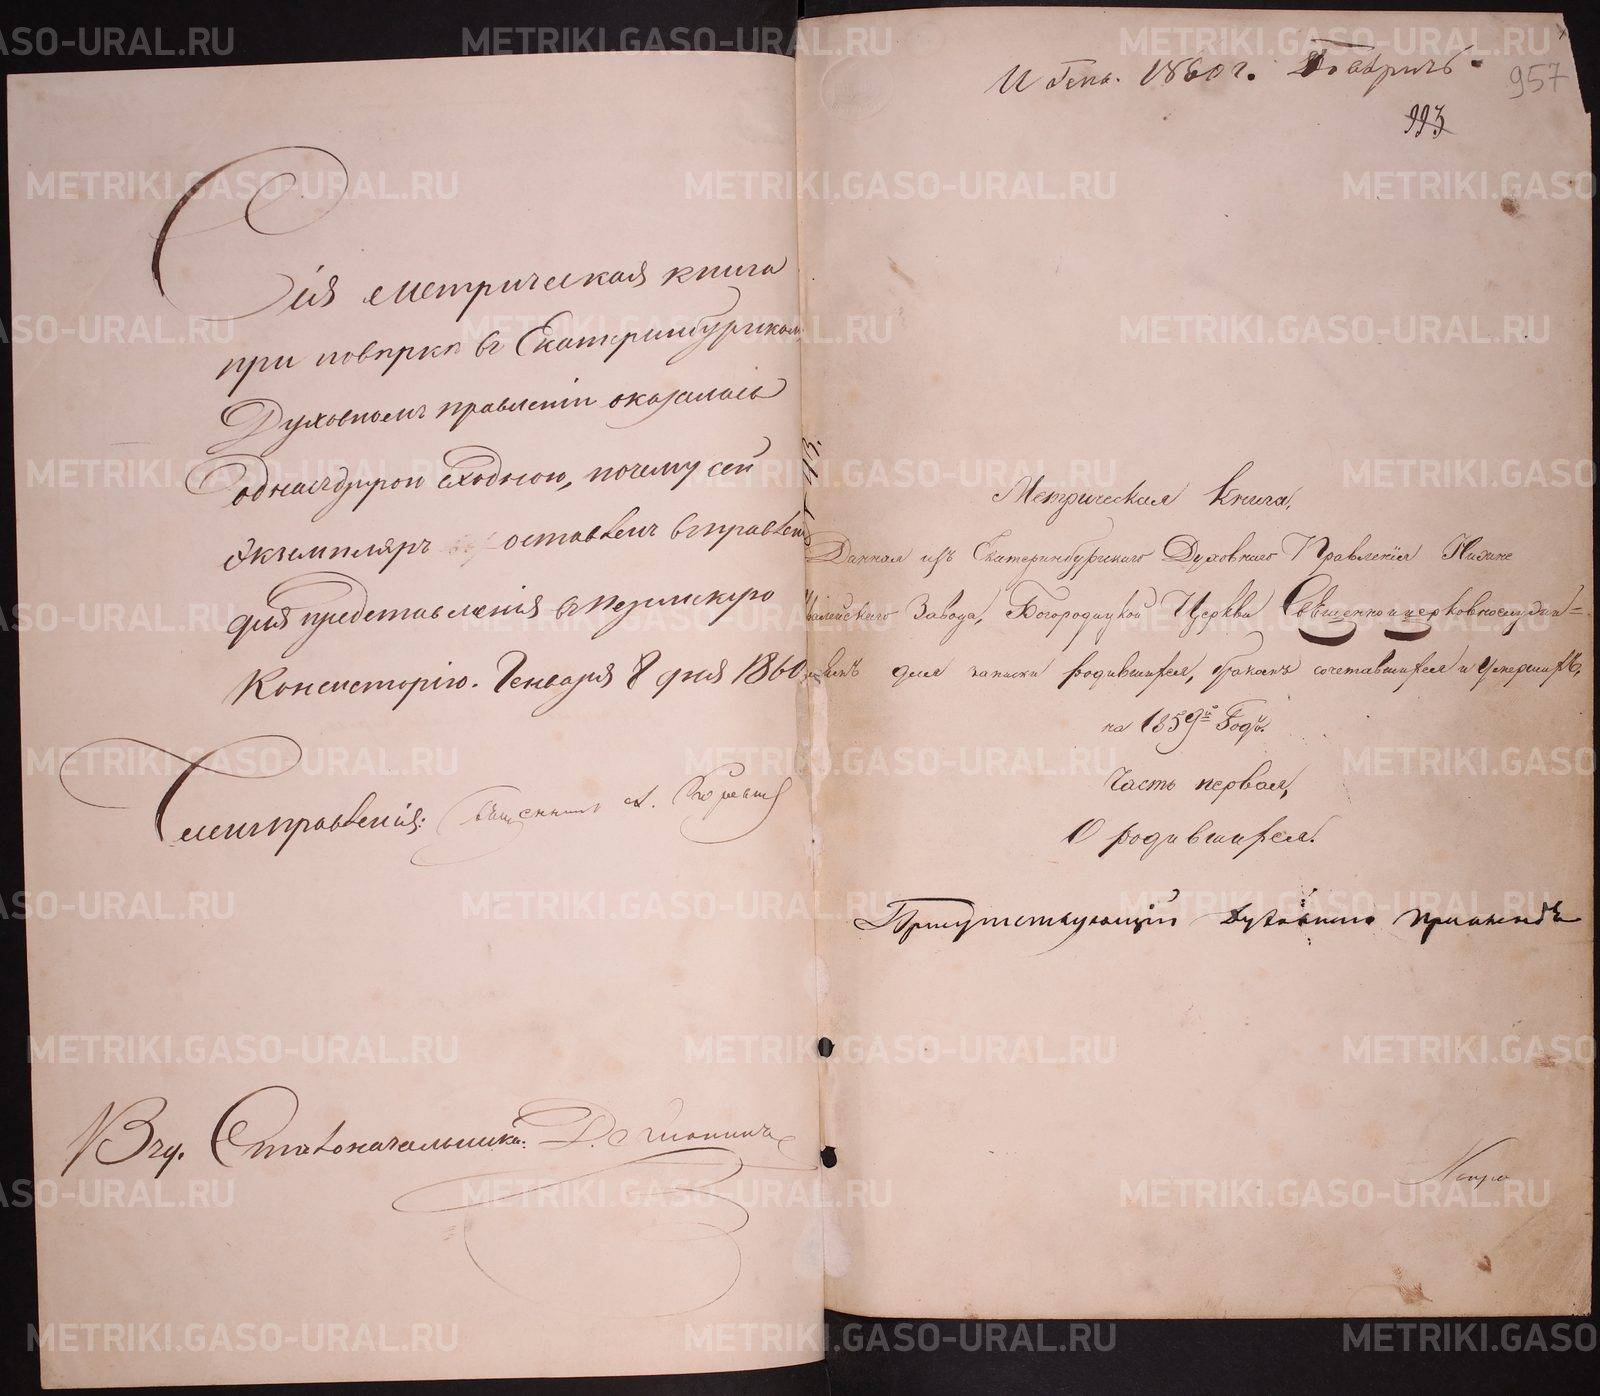 Сія метрическая книга
при повѣркѣ въ Екатеринбургскомъ
Духовномъ правленіи оказалась
одна съ другою сходною, почему сей
экземпляръ оставленъ въ правленіи
для представленія въ Пермскую
Консисторію. Генваря 8 дня 1860
Членъ правленія: Священникъ А.
Вѣд. Столоначальника:
11 Генв. 1860 г. Повѣрить.
957
993
Метрическая Книга,
Данная изъ Екатеринбургскаго Духовнаго Правленія Нижне
Завода, Богородицкой Церкви Священно и церковнослужи=
телямъ для записки родившихся, бракомъ сочетавшихся и Умершихъ,
на 1859й Годъ.
Часть первая,
О родившихся.
Присутствующій Духовнаго Правленія
METRIKI.GASO-URAL.RU